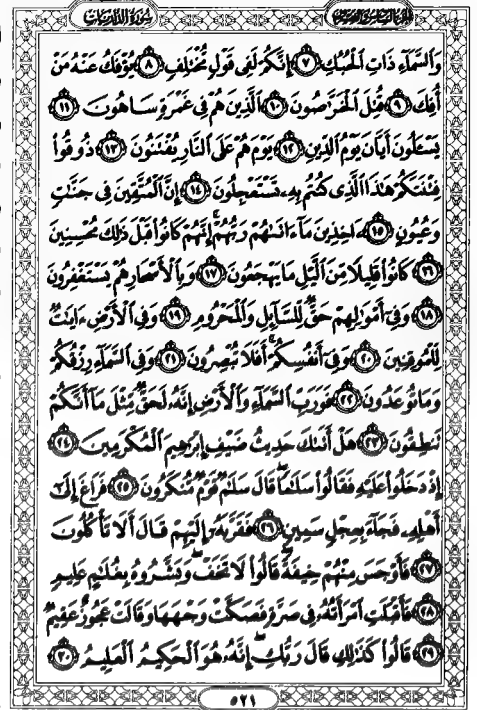 سُورَةُ الذَّارِيَاتِ الجُزْءُ السَّادِسُ وَالعِشْرُونَ
وَالسَّمَآءِ ذَاتِ الْحُبُكِ ٧ إِنَّكُمْ لَفِى قَوْلٍ مُّخْتَلِفٍ ٨ يُؤْفَكُ عَنْهُ مَنْ
أُفِكَ ٩ قُتِلَ الْخَرَّٰصُونَ ١٠ الَّذِينَ هُمْ فِى غَمْرَةٍ سَاهُونَ ١١
يَسْـَٔلُونَ أَيَّانَ يَوْمُ الدِّينِ ١٢ يَوْمَ هُمْ عَلَى النَّارِ يُفْتَنُونَ ١٣ ذُوقُوا۟
فِتْنَتَكُمْ هَٰذَا الَّذِى كُنتُم بِهِۦ تَسْتَعْجِلُونَ ١٤ إِنَّ الْمُتَّقِينَ فِى جَنَّٰتٍ
وَعُيُونٍ ١٥ ءَاخِذِينَ مَآ ءَاتَىٰهُمْ رَبُّهُمْ ۚ إِنَّهُمْ كَانُوا۟ قَبْلَ ذَٰلِكَ مُحْسِنِينَ
١٦ كَانُوا۟ قَلِيلًا مِّنَ الَّيْلِ مَا يَهْجَعُونَ ١٧ وَبِالْأَسْحَارِ هُمْ يَسْتَغْفِرُونَ
١٨ وَفِىٓ أَمْوَٰلِهِمْ حَقٌّ لِّلسَّآئِلِ وَالْمَحْرُومِ ١٩ وَفِى الْأَرْضِ ءَايَٰتٌ
لِّلْمُوقِنِينَ ٢٠ وَفِىٓ أَنفُسِكُمْ ۚ أَفَلَا تُبْصِرُونَ ٢١ وَفِى السَّمَآءِ رِزْقُكُمْ
وَمَا تُوعَدُونَ ٢٢ فَوَرَبِّ السَّمَآءِ وَالْأَرْضِ إِنَّهُۥ لَحَقٌّ مِّثْلَ مَآ أَنَّكُمْ
تَنطِقُونَ ٢٣ هَلْ أَتَىٰكَ حَدِيثُ ضَيْفِ إِبْرَٰهِيمَ الْمُكْرَمِينَ ٢٤
إِذْ دَخَلُوا۟ عَلَيْهِ فَقَالُوا۟ سَلَٰمًا ۖ قَالَ سَلَٰمٌ قَوْمٌ مُّنكَرُونَ ٢٥ فَرَاغَ إِلَىٰٓ
أَهْلِهِۦ فَجَآءَ بِعِجْلٍ سَمِينٍ ٢٦ فَقَرَّبَهُۥٓ إِلَيْهِمْ قَالَ أَلَا تَأْكُلُونَ
٢٧ فَأَوْجَسَ مِنْهُمْ خِيفَةً ۖ قَالُوا۟ لَا تَخَفْ ۖ وَبَشَّرُوهُ بِغُلَٰمٍ عَلِيمٍ
٢٨ فَأَقْبَلَتِ امْرَأَتُهُۥ فِى صَرَّةٍ فَصَكَّتْ وَجْهَهَا وَقَالَتْ عَجُوزٌ عَقِيمٌ
٢٩ قَالُوا۟ كَذَٰلِكِ قَالَ رَبُّكِ ۖ إِنَّهُۥ هُوَ الْحَكِيمُ الْعَلِيمُ ٣٠
٥٢١